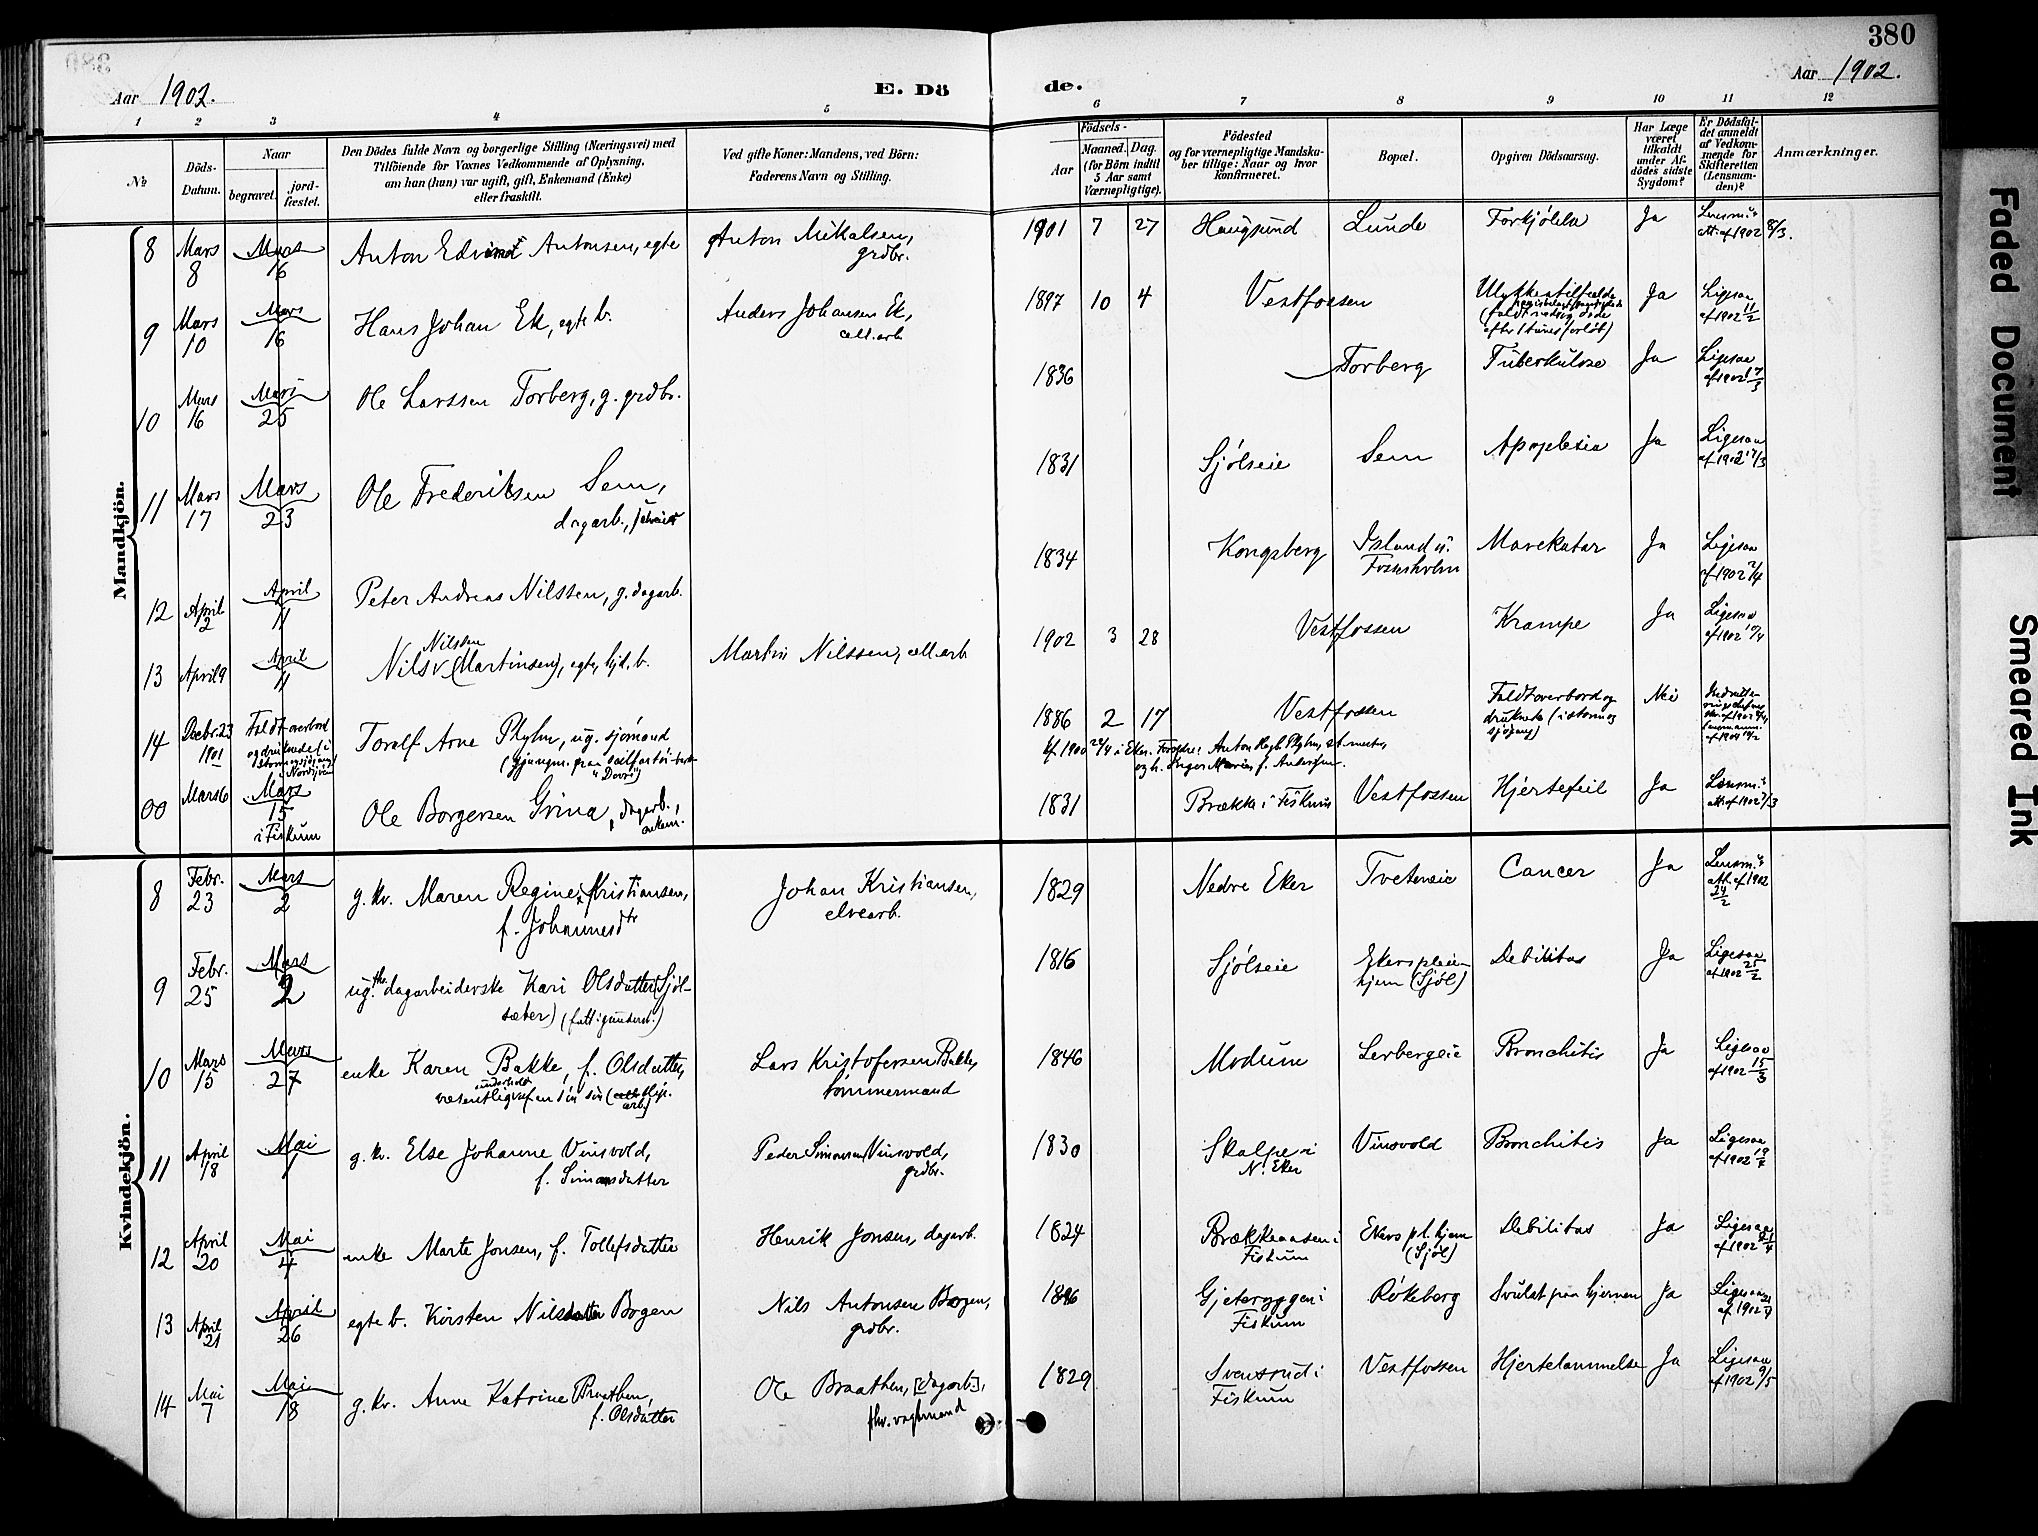 380
Aar 1902.
E. Döde.
Aar 1902.
1 2 3 4 5 6 7 8 9 10 11 12
№
Döds-Datum.
Naar
begravet.
jord-fæstet.
Den Dödes fulde Navn og borgerlige Stilling (Næringsvei) med
Tilföiende for Voxnes Vedkommende af Oplysning,
om han (hun) var ugift, gift, Enkemand (Enke)
eller fraskilt.
Ved gifte Koner: Mandens, ved Börn:
Faderens Navn og Stilling.
Födsels-
Aar
Maaned. Dag.
(for Börn indtil
5 Aar samt
Værnepligtige).
Födested
og for værnepligtige Mandska-
ber tillige: Naar og hvor
konfirmeret.
Bopæl.
Opgiven Dödsaarsag.
Har Læge
været
tilkaldt
under Af-
dödes sidste
Sygdom?
Er Dödsfal-
det anmeldt
af Vedkom-
mende for
Skifteretten
(Lensman-
den)?
Anmærkninger.
Mandkjön.
8 Mars 8 Mars 16 Anton Edvind Antonsen, egte Anton Mikalsen, grdbr. 1901 7 27 Haugsund Lunde Forkjølelse Ja Lensm.s Att. af 1902 8/3.
9 Mars 10 Mars 16 Hans Johan Ek, egte b. Anders Johansen Ek, cell.arb. 1897 10 4 Vestfossen Ulykkestilfælde Ja Ligesaa af 1902 11/2
10 Mars 16 Mars 25 Ole Larssen Torberg, g. grdbr. 1836 Torberg Tuberkulose Ja Ligesaa af 1902 17/3
11 Mars 17 Mars 23 Ole Frederiksen Sem, dagarb., 1831 Sjølseie Sem Apoplexia Ja Ligesaa af 1902 17/3
12 April 2 April 11 Peter Andreas Nilssen, g. dagarb. 1834 Kongsberg Island u. Fossesholm Mavekatar Ja Ligesaa af 1902 2/4
13 April 9 April 11 Nils Nilssen (Martinsen), egte, hjd. b. Martin Nilssen, cell.arb 1902 3 28 Vestfossen Krampe Ja Ligesaa af 1902 10/4
14 Decbr. 23 1901 Faldt overbord og druknede i Nordsjøen Toralf Arne Plyhn, ug. sjømand "Dovre" 1886 2 17 Vestfossen Faldt overbord og druknede (i storm og sjøgang) Nei
Kf. 1900 22/4 i Eker. Forældre: Anton Plyhn,
00 Mars 6 Mars 15 i Fiskum Ole Borgersen Grina, dagarb., enkem. 1831 Brække i Fiskum Vestfossen Hjertefeil Ja Lensm.s Att. af 1902 7/3
Kvindekjön.
8 Febr. 23 Mars 2 g. kv. Maren Regine Kristiansen, f. Johannesdtr Johan Kristiansen, elvearb. 1829 Nedre Eker Tveteneie Cancer Ja Lensm.s Att. af 1902 24/2
9 Febr. 25 Mars 2 ug. fhv. dagarbeiderske Kari Olsdatter (Sjølsæter) (fattigunderst.) 1816 Sjølseie Ekers pleiehjem (Sjøl) Debilitas Ja Ligesaa af 1902 25/2
10 Mars 15 Mars 27 enke Karen Bakke, f. Olsdatter, underholdt væsentligst af en søn Lars Kristofersen Bakke, tømmermand 1846 Modum Lerbergeie Bronchitis Ja Ligesaa af 1902 15/3
11 April 18 Mai 1 g. kv. Else Johanne Vinsvold, f. Simonsdatter Peder Simonsen Vinsvold, grdbr. 1830 Skalpe i N. Eker Vinsvold Bronchitis Ja Ligesaa af 1902 19/4
12 April 20 Mai 4 enke Marte Jonsen, f. Tollefsdatter Henrik Jonsen, dagarb. 1824 Brækkeaasen i Fiskum Ekers pl.hjem (Sjøl) Debilitas Ja Ligesaa af 1902 21/4
13 April 21 April 26 egte b. Kirsten Nilsdatter Bogen Nils Antonsen Bogen, grdbr. 1896 Gjeteryggen i Fiskum Røkeberg Svulst paa hjernen Ja Ligesaa af 1902 21/4
14 Mai 7 Mai 18 g. kv. Anne Katrine Braathen, f. Olsdatter Ole Braathen, [dagarb.], fhv. vagtmand 1829 Svensrud i Fiskum Vestfossen Hjertelammelse Ja Ligesaa af 1902 9/5
Faded Document
Smeared Ink